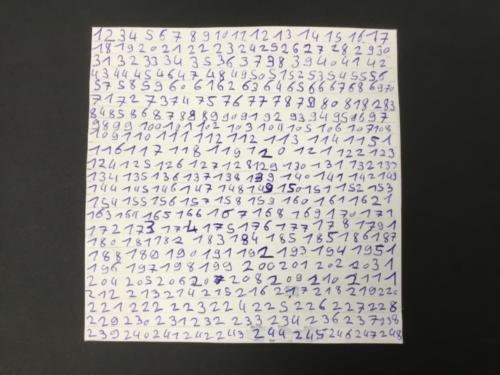 1 2 3 4 5 6 7 8 9 10 11 12 13 14 15 16 17
18 19 20 21 22 23 24 25 26 27 28 29 30
31 32 33 34 35 36 37 38 39 40 41 42
43 44 45 46 47 48 49 50 51 52 53 54 55 56
57 58 59 60 61 62 63 64 65 66 67 68 69 70
71 72 73 74 75 76 77 78 79 80 81 82 83
84 85 86 87 88 89 90 91 92 93 94 95 96 97
98 99 100 101 102 103 104 105 106 107 108
109 110 111 112 113 114 115 1
116 117 118 119 120 121 122 123
124 125 126 127 128 129 130 131 132 133
134 135 136 137 138 139 140 141 142 143
144 145 146 147 148 149 150 151 152 153
154 155 156 157 158 159 160 161 162 1
163 164 165 166 167 168 169 170 171
172 173 174 175 176 177 178 179 1
180 181 182 183 184 185 185 186 187
188 189 190 191 192 193 194 195 1
196 197 198 199 200 201 202 203 1
204 205 206 207 208 209 210 211 1
212 213 214 215 216 217 218 219 220
221 222 223 224 225 226 227 228
229 230 231 232 233 234 236 237 238
239 240 241 242 243 244 245 246 247 248